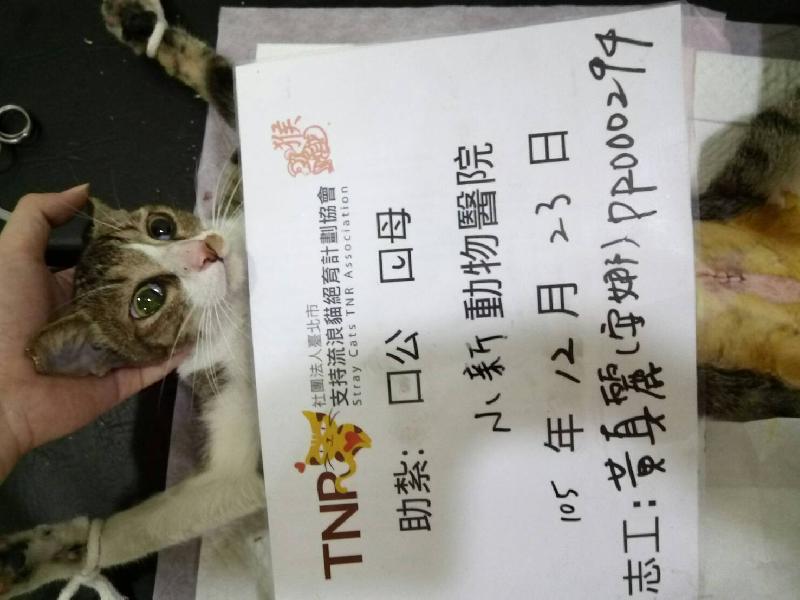 TNR
社團法人臺北市
支持流浪貓絕育計劃協會
Stray Cats TNR Association
猴
助紮: 口公 口母
小新動物醫院
105年12月23日
志工:黃真麗(安娜)PP2000294